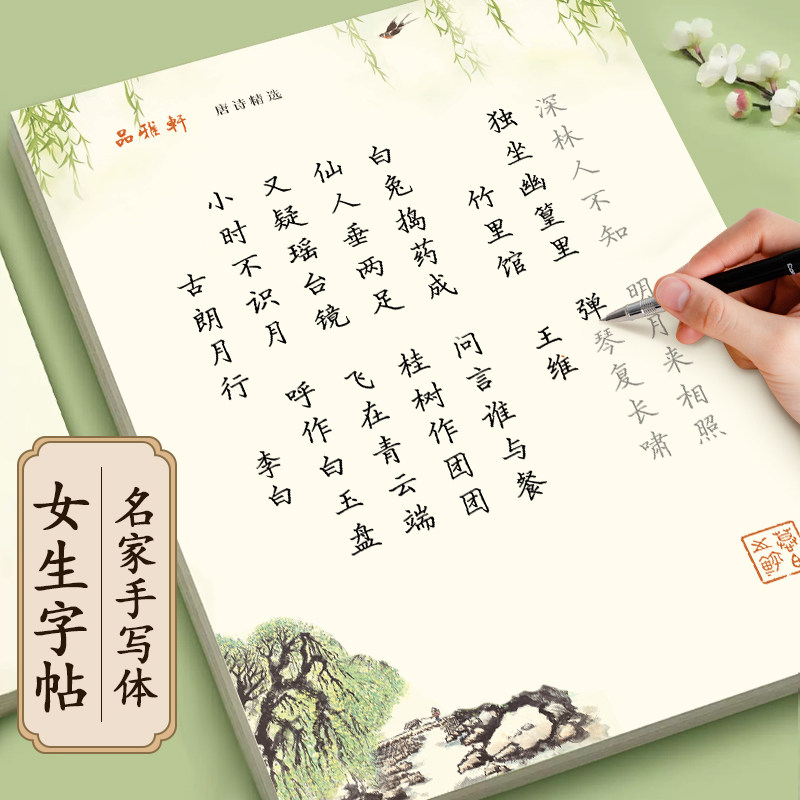 品雅轩
唐诗精选
古朗月行
李白
小时不识月
呼作白玉盘
又疑瑶台镜
飞在青云端
仙人垂两足
桂树作团团
白兔捣药成
问言谁与餐
竹里馆
王维
独坐幽篁里
弹琴复长啸
深林人不知
明月来相照
名家手写体
女生字帖